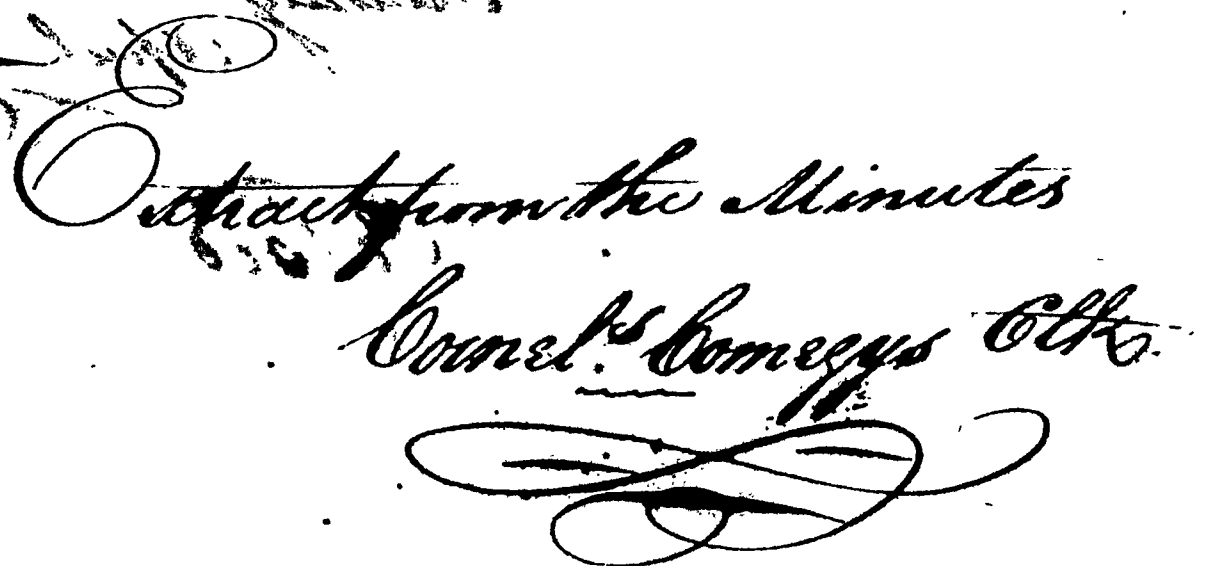 Extract from the Minutes
Cornel.s Comegys Clk.